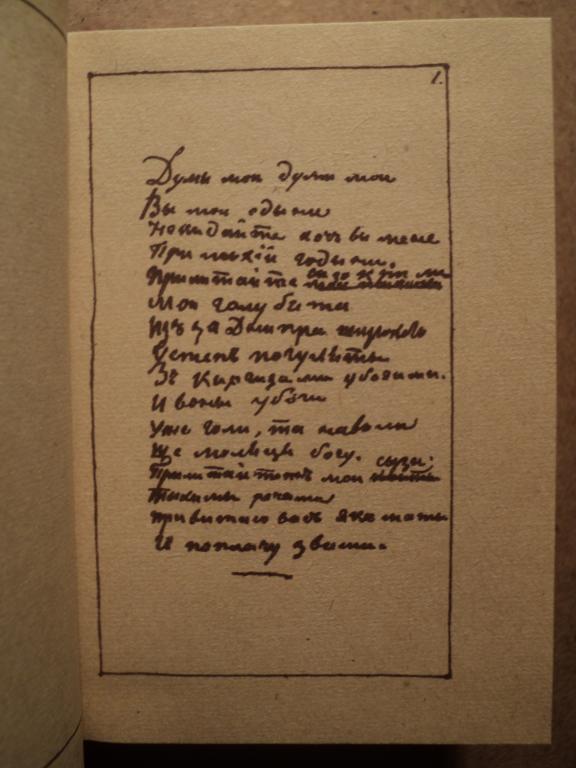 1.
Думы мои думы мои
Вы мои едыни
Некидайте хочь вы мене
При лыхій годыни.
Прылитайте сизокрыли
Мои голубята
Изъ за Днипра широкого
Устепъ погуляты
Зъ Киргизами убогими.
И воны убоги
Уже голи, та наволи
Ще молюця богу. сызи.
Прылитайтежъ мои
Тыхыми речамы
привитаю васъ якъ маты
И поплачу звами.